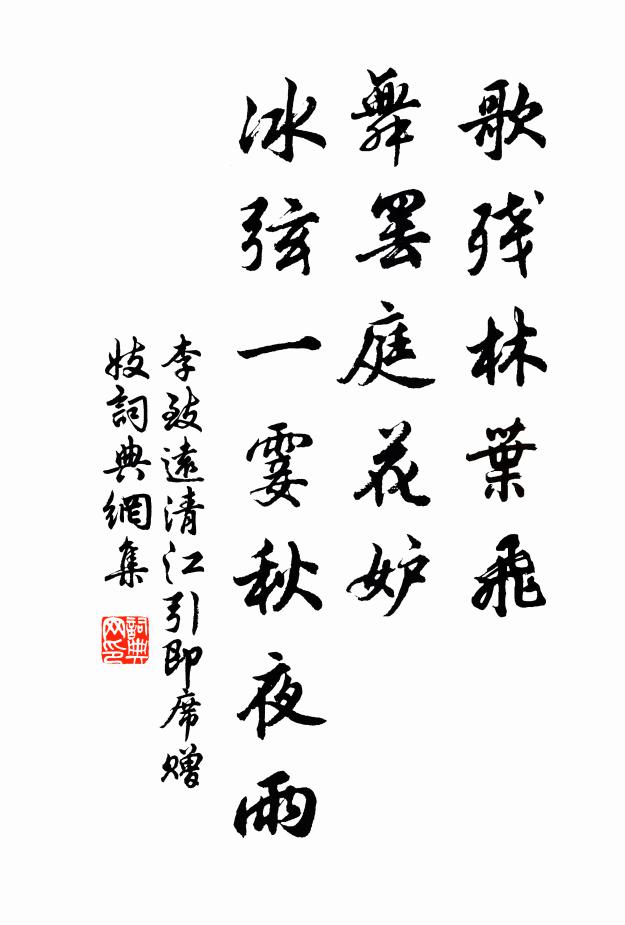 歌残林葉飛
舞罢庭花妒
冰弦一霎秋夜雨
李致遠清江引即席赠
妓詞典網集
詞典网印